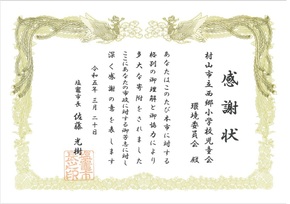 感謝状
村山市立西郷小学校児童会
環境委員会 殿
あなたはこのたび本市に対する
格別の御理解と御協力により
多大な寄附をされました
ここにあなたの市政に対する御芳志に対し
深く感謝の意を表します
令和五年三月二十日
塩竈市長 佐藤光樹